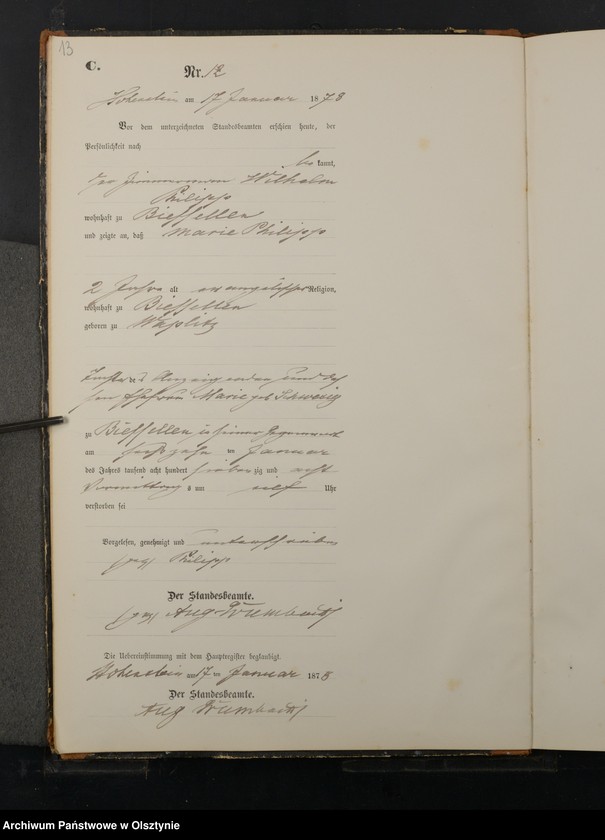 13
C.
Nr. 12
Hohenstein am 17 Januar 1878
Vor dem unterzeichneten Standesbeamten erschien heute, der
Persönlichkeit nach
be kannt,
der Zimmermann Wilhelm
Philipp
wohnhaft zu Biessellen
und zeigte an, daß Marie Philipp
2 Jahre alt evangelischer Religion,
wohnhaft zu Biessellen
geboren zu Waplitz
Tochter des Anzeigenden und des
sen Ehefrau Marie geb.
zu Biessellen in seiner Gegenwart
am ten Januar
des Jahres tausend acht hundert sieben zig und acht
Vormittag s um elf Uhr
verstorben sei
Vorgelesen, genehmigt und unterschrieben
(gez) Philipp
Der Standesbeamte.
(gez) Aug
Die Uebereinstimmung mit dem Hauptregister beglaubigt.
Hohenstein am 17 ten Januar 1878
Der Standesbeamte.
Aug
Archiwum Państwowe w Olsztynie